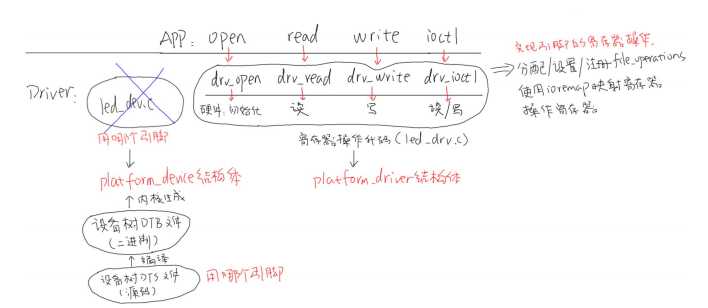 APP: open read write ioctl
实现引脚的寄存器操作.
Driver:
led_dev.c
drv_open drv_read drv_write drv_ioctl
硬件初始化 读 写 读/写
⇒ 分配/设置/注册 file_operations
使用 ioremap 映射寄存器
操作寄存器.
用哪个引脚
寄存器操作代码 (led_drv.c)
platform_device结构体
platform_driver结构体
↑内核生成
设备树DTB文件
(二进制)
↑编译
设备树DTS文件
(源码)
用哪个引脚